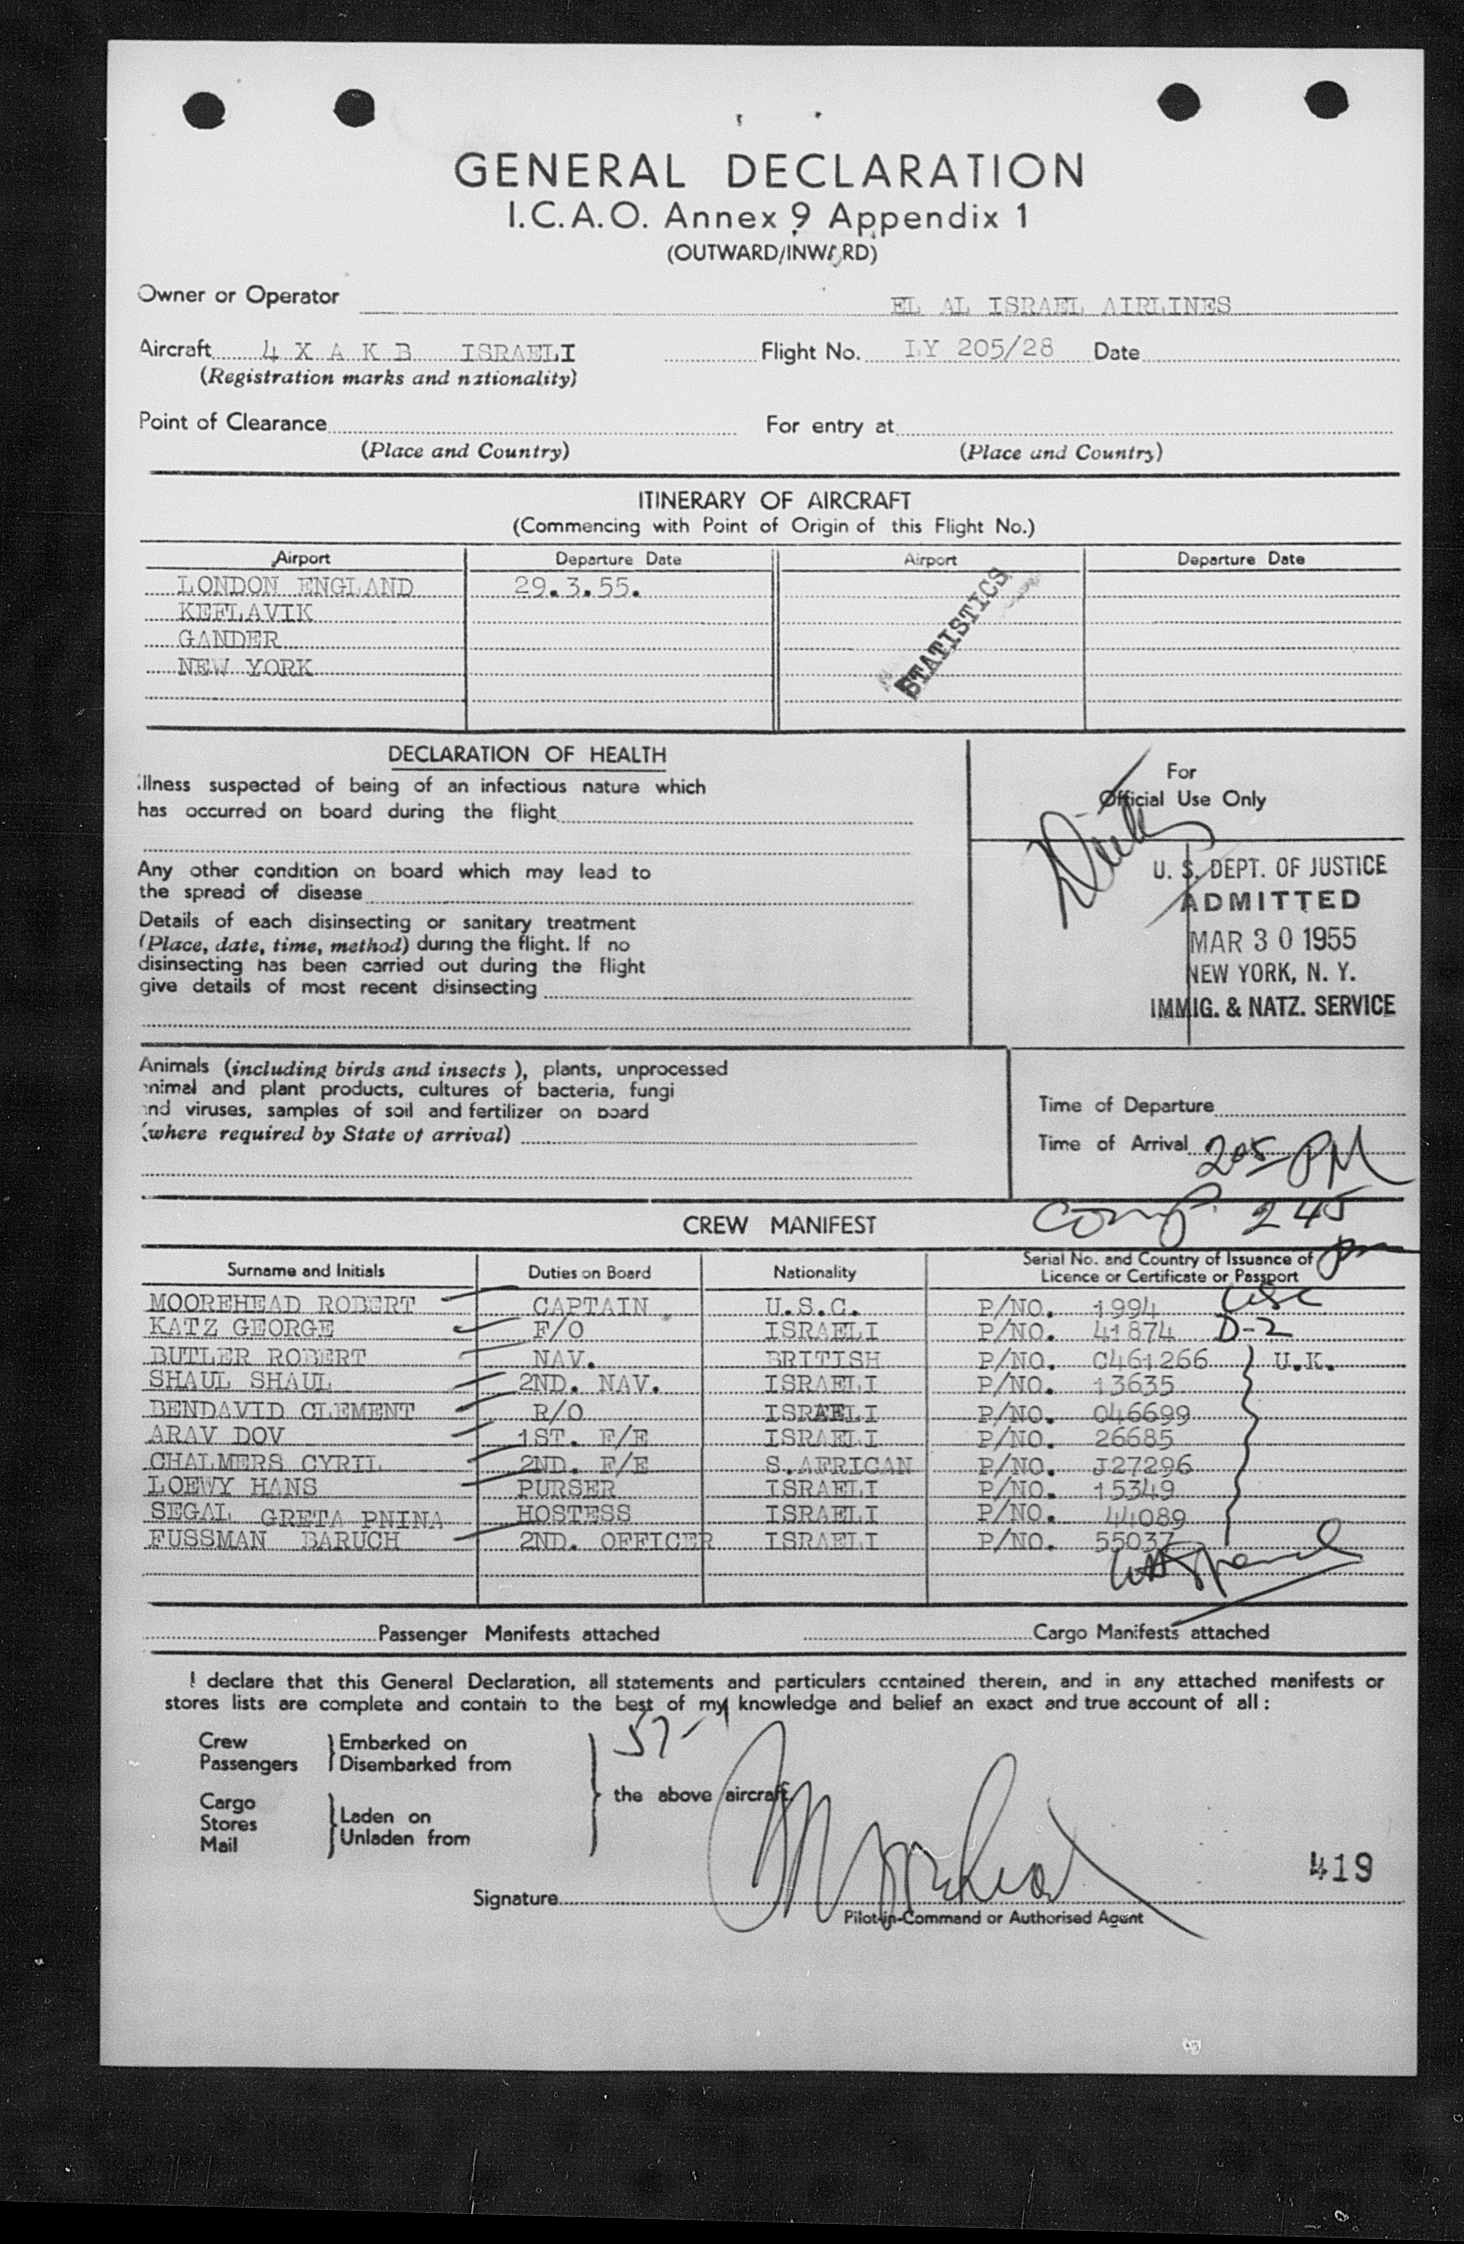 GENERAL DECLARATION
I.C.A.O. Annex 9 Appendix 1
(OUTWARD/INWARD)
Owner or Operator EL AL ISRAEL AIRLINES
Aircraft 4 X A K B ISRAELI Flight No. LY 205/28 Date
(Registration marks and nationality)
Point of Clearance For entry at
(Place and Country) (Place and Country)
ITINERARY OF AIRCRAFT
(Commencing with Point of Origin of this Flight No.)
Airport Departure Date Airport Departure Date
LONDON ENGLAND 29.3.55.
KEFLAVIK
GANDER
NEW YORK
STATISTICS
DECLARATION OF HEALTH
Illness suspected of being of an infectious nature which
has occurred on board during the flight
Any other condition on board which may lead to
the spread of disease
Details of each disinsecting or sanitary treatment
(Place, date, time, method) during the flight. If no
disinsecting has been carried out during the flight
give details of most recent disinsecting
For
Official Use Only
U. S. DEPT. OF JUSTICE
ADMITTED
MAR 30 1955
NEW YORK, N. Y.
IMMIG. & NATZ. SERVICE
Animals (including birds and insects ), plants, unprocessed
animal and plant products, cultures of bacteria, fungi
and viruses, samples of soil and fertilizer on board
(where required by State of arrival)
Time of Departure
Time of Arrival 205 PM
Comp. 245 pm
CREW MANIFEST
Surname and Initials Duties on Board Nationality Serial No. and Country of Issuance of Licence or Certificate or Passport
MOOREHEAD ROBERT CAPTAIN U.S.C. P/NO. 1994 USC
KATZ GEORGE F/O ISRAELI P/NO. 41874 D-2
BUTLER ROBERT NAV. BRITISH P/NO. C461266 U.K.
SHAUL SHAUL 2ND. NAV. ISRAELI P/NO. 13635
BENDAVID CLEMENT R/O ISRAELI P/NO. 046699
ARAV DOV 1ST. F/E ISRAELI P/NO. 26685
CHALMERS CYRIL 2ND. F/E S.AFRICAN P/NO. J27296
LOEWY HANS PURSER ISRAELI P/NO. 15349
SEGAL GRETA PNINA HOSTESS ISRAELI P/NO. 44089
FUSSMAN BARUCH 2ND. OFFICER ISRAELI P/NO. 55037
Passenger Manifests attached Cargo Manifests attached
I declare that this General Declaration, all statements and particulars contained therein, and in any attached manifests or
stores lists are complete and contain to the best of my knowledge and belief an exact and true account of all :
57-1
Crew Embarked on
Passengers Disembarked from
the above aircraft.
Cargo Laden on
Stores Unladen from
Mail
419
Signature Moorehead
Pilot-in-Command or Authorised Agent